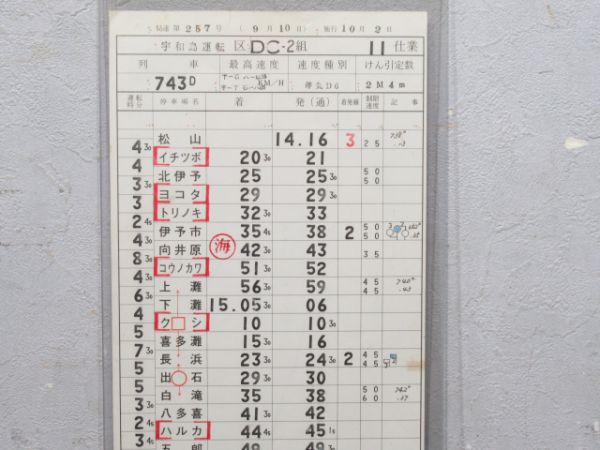 局達第257号 (9月10日) 施行10月2日
宇和島運転区 DC-2組 11仕業
列車 最高速度 速度種別 けん引定数
743D KM/H 2M4m
運転時分 停車場名 着 発(通) 着発線 制限速度 記事
松山 14.16 3 25
4 30 イチツボ 20 30 21
4 北伊予 25 25 30 50 50
3 30 ヨコタ 29 29 30
3 トリノキ 32 30 33
2 45 伊予市 35 45 38 2 50 50
4 30 向井原 海 42 30 43 35
8 30 コウノカワ 51 30 52
4 30 上灘 56 30 59 45 45
6 30 下灘 15.05 30 06
4 クシ 10 10 30
5 喜多灘 15 30 16
7 30 長浜 23 30 24 30 2 45 45
5 出石 29 30 30
5 白滝 35 38 50 60
3 30 八多喜 41 30 42
2 45 ハルカ 44 45 45 15
3 45 五郎 48 49